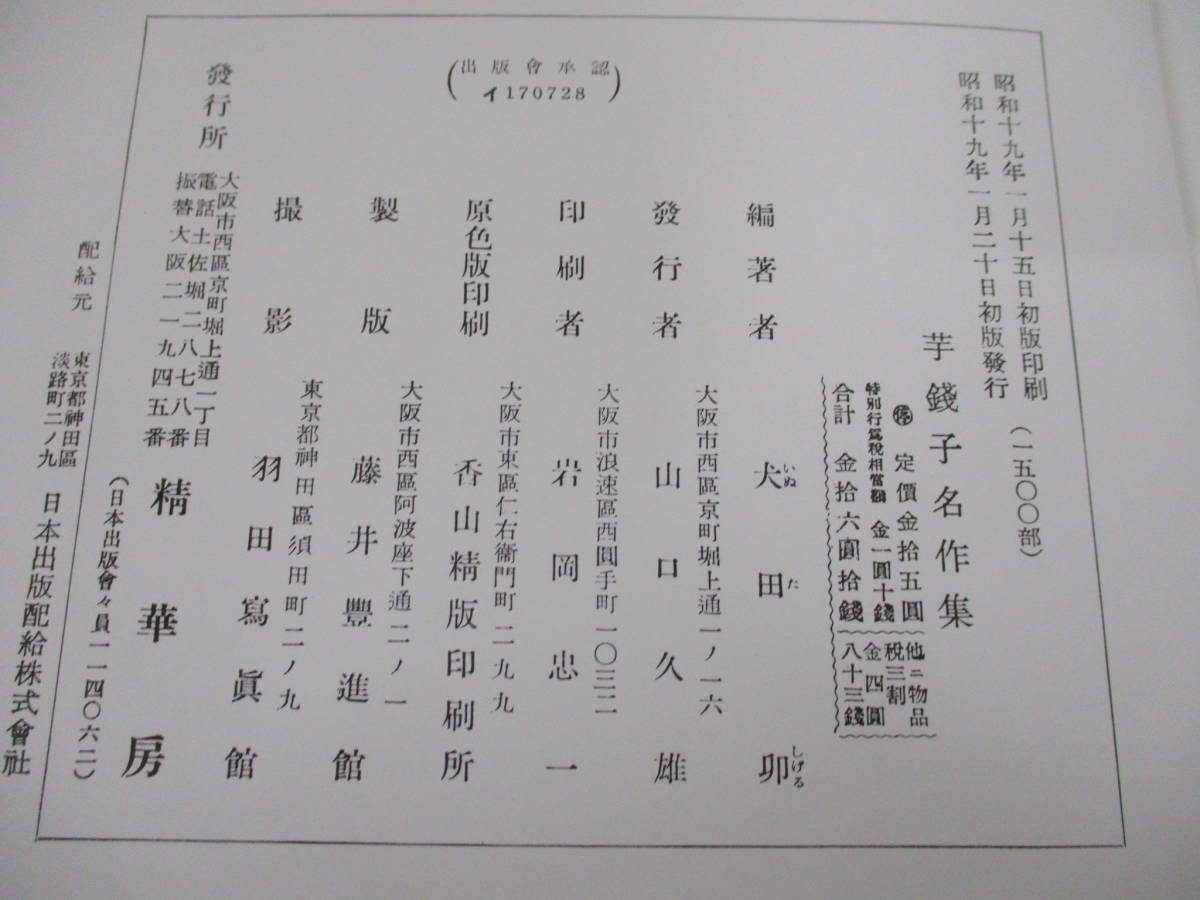 昭和十九年一月十五日初版印刷
昭和十九年一月二十日初版發行
(一五〇〇部)
芋錢子名作集
停 定價金拾五圓
特別行爲稅相當額 金一圓十錢
合計 金拾六圓拾錢
他ニ物品
稅三割
金四圓
八十三錢
編著者 犬田卯
いぬ た しげる
大阪市西區京町堀上通一ノ一六
發行者 山口久雄
大阪市浪速區西圓手町一〇三二
印刷者 岩岡忠一
大阪市東區仁右衞門町二九九
原色版印刷 香山精版印刷所
大阪市西區阿波座下通二ノ一
製版 藤井豐進館
東京都神田區須田町二ノ九
撮影 羽田寫眞館
(出版會承認
イ170728)
發行所
大阪市西區京町堀上通一丁目
電話土佐堀二八七八番
振替大阪二一九四五番
精華房
(日本出版會々員一一四〇六二)
配給元
東京都神田區
淡路町二ノ九
日本出版配給株式會社